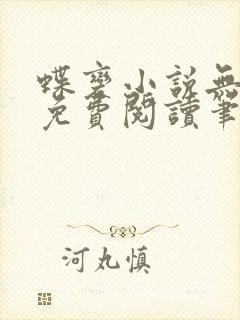 蝶变小説無
免費閱讀筆
河丸慎